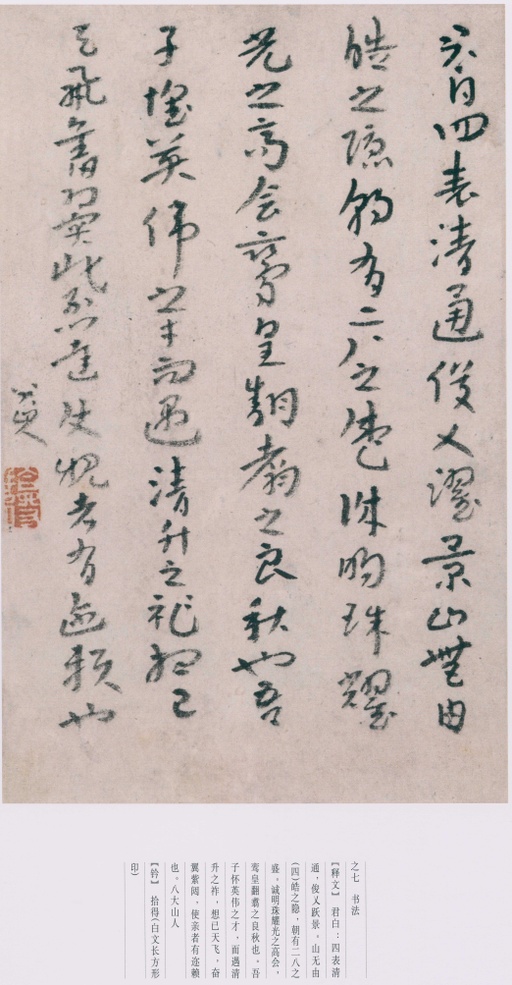 君白四表清通俊乂濯景山無由
皓之隱朝有二八之盛誠明珠耀
光之高会鸞皇翻翥之良秋也吾
子懷英偉之才而遇清升之祚想已
天飛奮翼紫闥使親者有賴也
八大山人
之七 书法
【释文】 君白：四表清
通，俊乂跃景。山无由
(四)皓之隐，朝有二八之
盛。诚明珠耀光之高会，
鸾皇翻翥之良秋也。吾
子怀英伟之才，而遇清
升之祚，想已天飞，奋
翼紫闼，使亲者有迩赖
也。八大山人
【钤】 拾得(白文长方形
印)